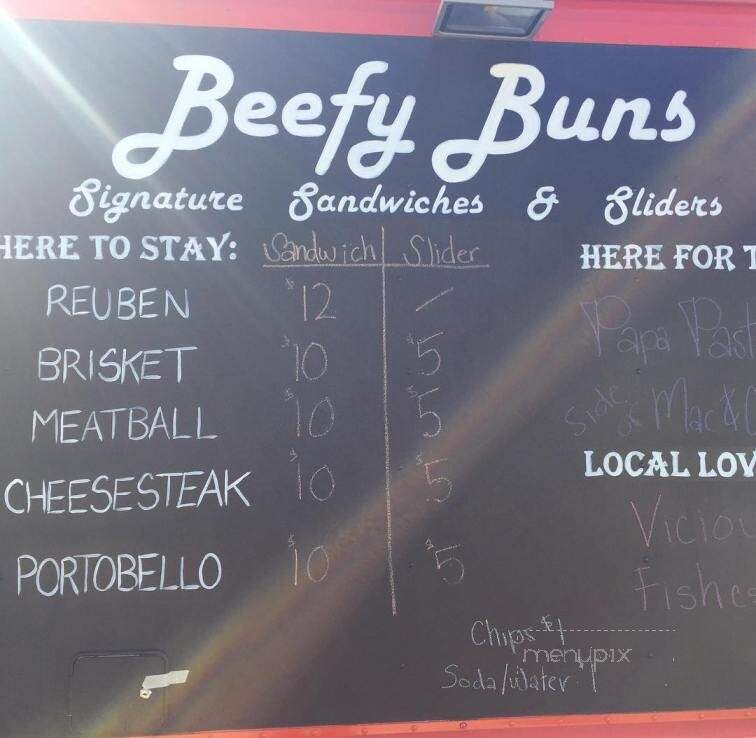 Beefy Buns
Signature Sandwiches & Sliders
HERE TO STAY: Sandwich Slider
REUBEN $12 —
BRISKET $10 $5
MEATBALL $10 $5
CHEESESTEAK $10 $5
PORTOBELLO $10 $5
HERE FOR T
Papa Past
Side of Mac &
LOCAL LOV
Viciou
Fishes
Chips $1
menupix
Soda/Water